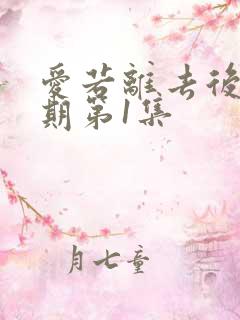 愛若離去後
期第1集
月七童